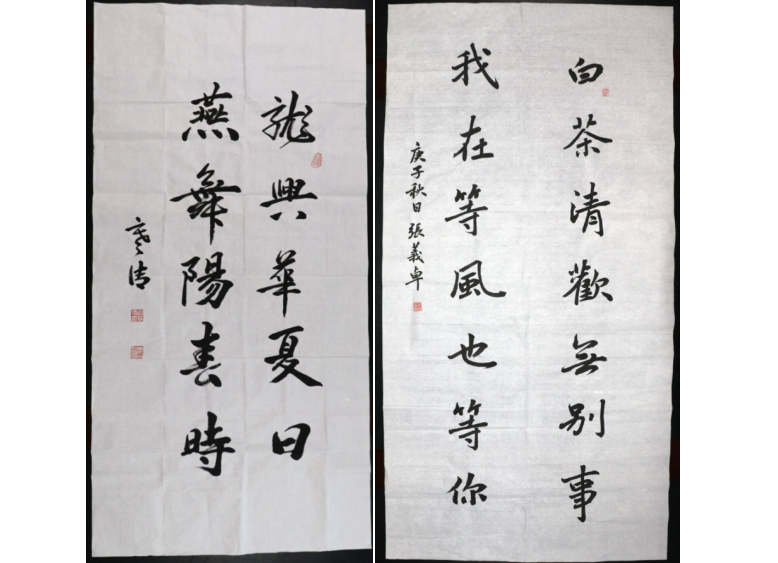 龍興華夏日
燕舞陽春時
白茶清歡無別事
我在等風也等你
庚子秋日 張義卓